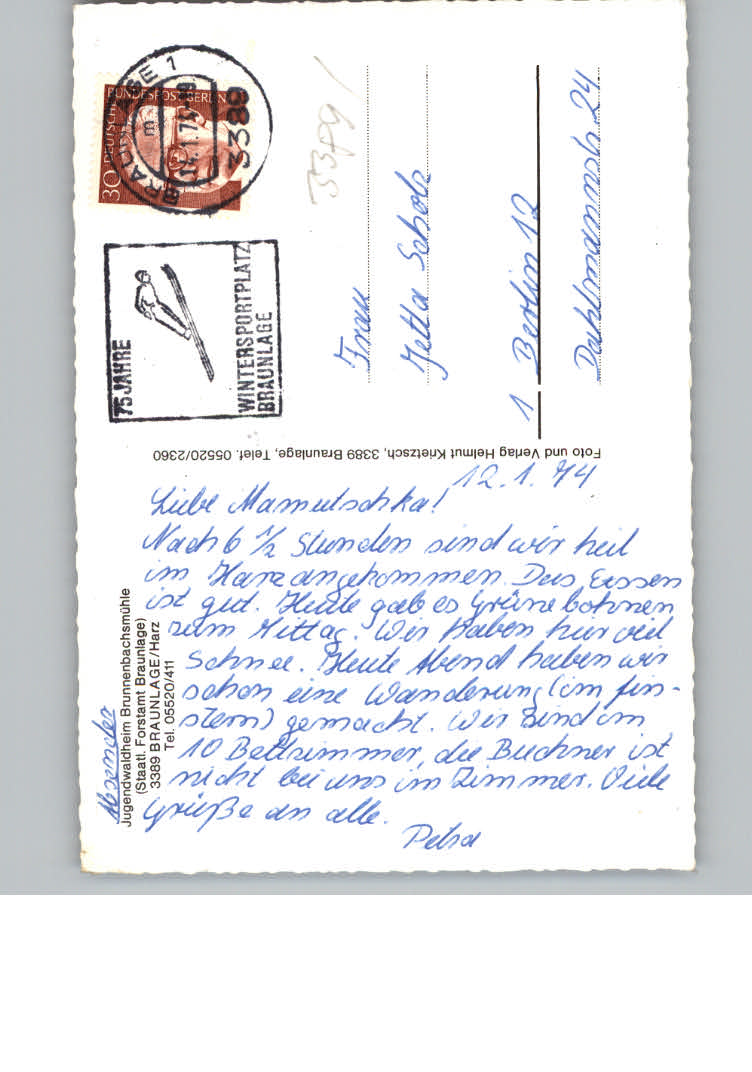 Liebe Mamutschka!
12.1.74
Nach 6 1/2 Stunden sind wir heil
im Harz angekommen. Das Essen
ist gut. Heute gab es Grüne bohnen
zum Mittag. Wir haben hier viel
Schnee. Heute Abend haben wir
schon eine Wanderung (im fin-
stern) gemacht. Wir sind im
10 Bettzimmer, die Buchner ist
nicht bei uns im Zimmer. Viele
Grüße an alle.
Petra
Absender
Jugendwaldheim Brunnenbachsmühle
(Staatl. Forstamt Braunlage)
3389 BRAUNLAGE/Harz
Tel. 05520/411
Foto und Verlag Helmut Krietzsch, 3389 Braunlage, Telef. 05520/2360
Frau
Jetta Scholz
1 Berlin 12
Dahlmannstr. 24
3389
30 DEUTSCHE BUNDESPOST BERLIN
BRAUNLAGE 1
3389
75 JAHRE
WINTERSPORTPLATZ
BRAUNLAGE